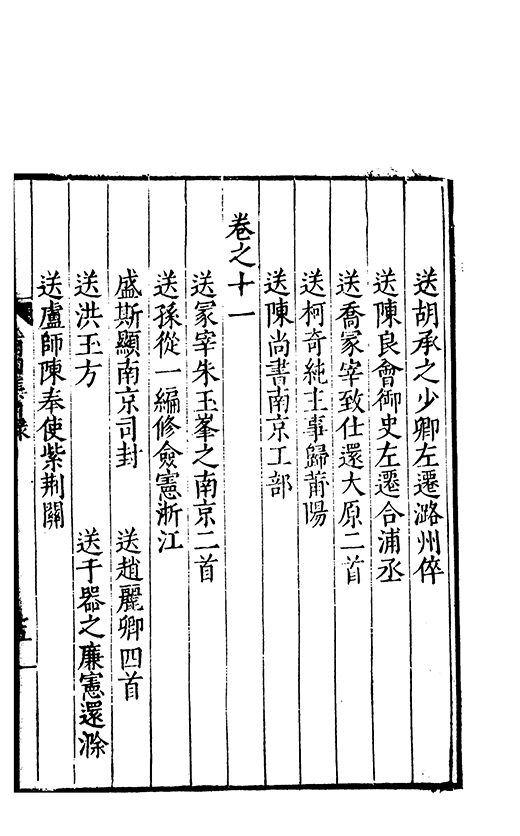 送胡承之少卿左遷潞州倅
送陳良會御史左遷合浦丞
送喬冡宰致仕還大原二首
送柯奇純主事歸莆陽
送陳尚書南京工部
卷之十一
送冡宰朱玉峯之南京二首
送孫從一編修僉憲浙江
盛斯顯南京司封　送趙麗卿四首
送洪玉方　送于器之廉憲還滁
送盧師陳奉使紫荆關